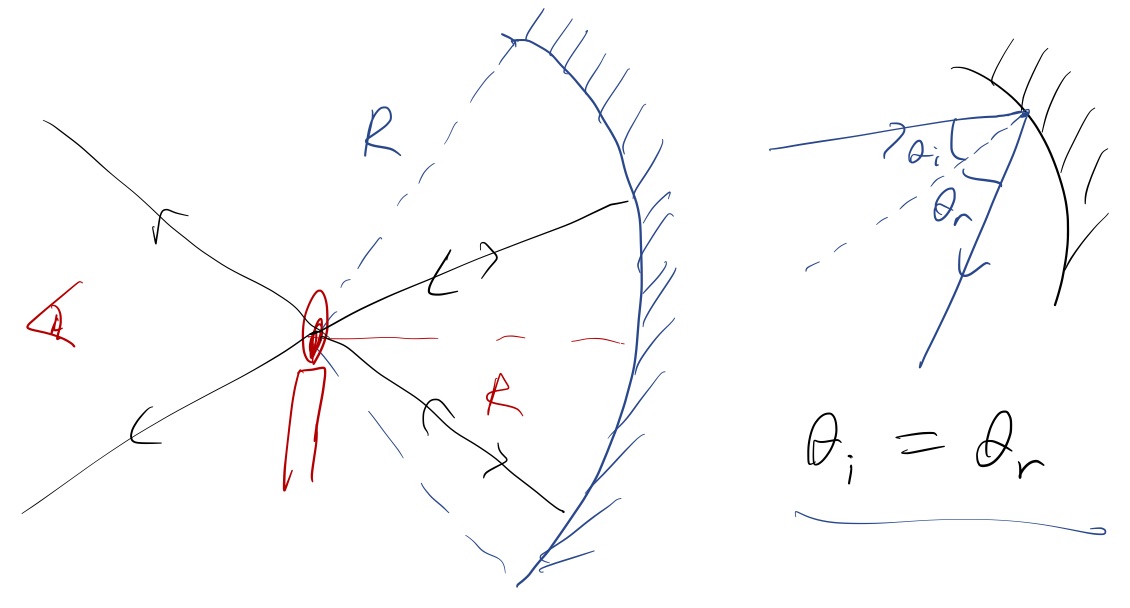 R
R
θi
θr
θi = θr